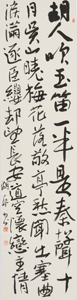 胡人吹玉笛一半是秦聲十
月吳山曉梅花落敬亭愁聞出塞曲
淚滿逐臣纓却望長安道空懷戀主情